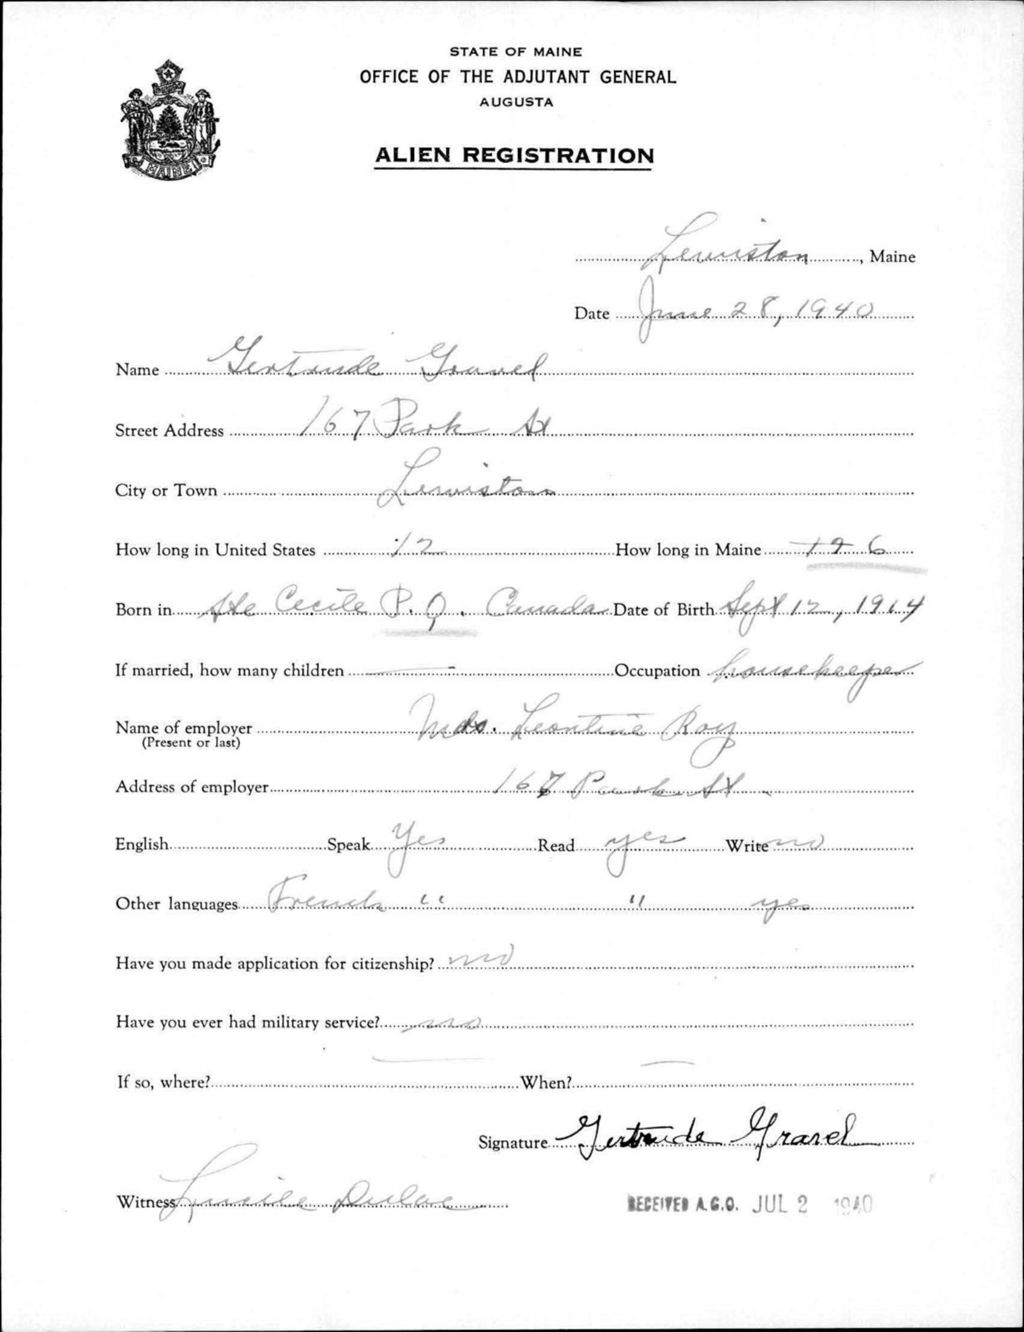 STATE OF MAINE
OFFICE OF THE ADJUTANT GENERAL
AUGUSTA
ALIEN REGISTRATION
MAINE
Lewiston, Maine
Date June 28, 1940
Name Gertrude Gravel
Street Address 167 Park St
City or Town Lewiston
How long in United States 12 How long in Maine 6
Born in Ste Cecile P.Q. Canada Date of Birth Sept 12, 1914
If married, how many children — Occupation housekeeper
Name of employer Mrs. Leontine Roy
(Present or last)
Address of employer 167 Park St.
English Speak Yes Read yes Write no
Other languages French " " yes
Have you made application for citizenship? no
Have you ever had military service? no
If so, where? — When? —
Signature Gertrude Gravel
Witness Lucille Dulac
RECEIVED A.G.O. JUL 2 1940